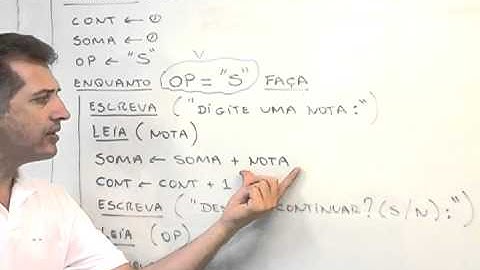 CONT ← 0
SOMA ← 0
OP ← "S"
V
ENQUANTO OP = "S" FAÇA
ESCREVA ("DIGITE UMA NOTA:")
LEIA (NOTA)
SOMA ← SOMA + NOTA
CONT ← CONT + 1
ESCREVA ("DES CONTINUAR? (S/N):")
LEIA (OP)